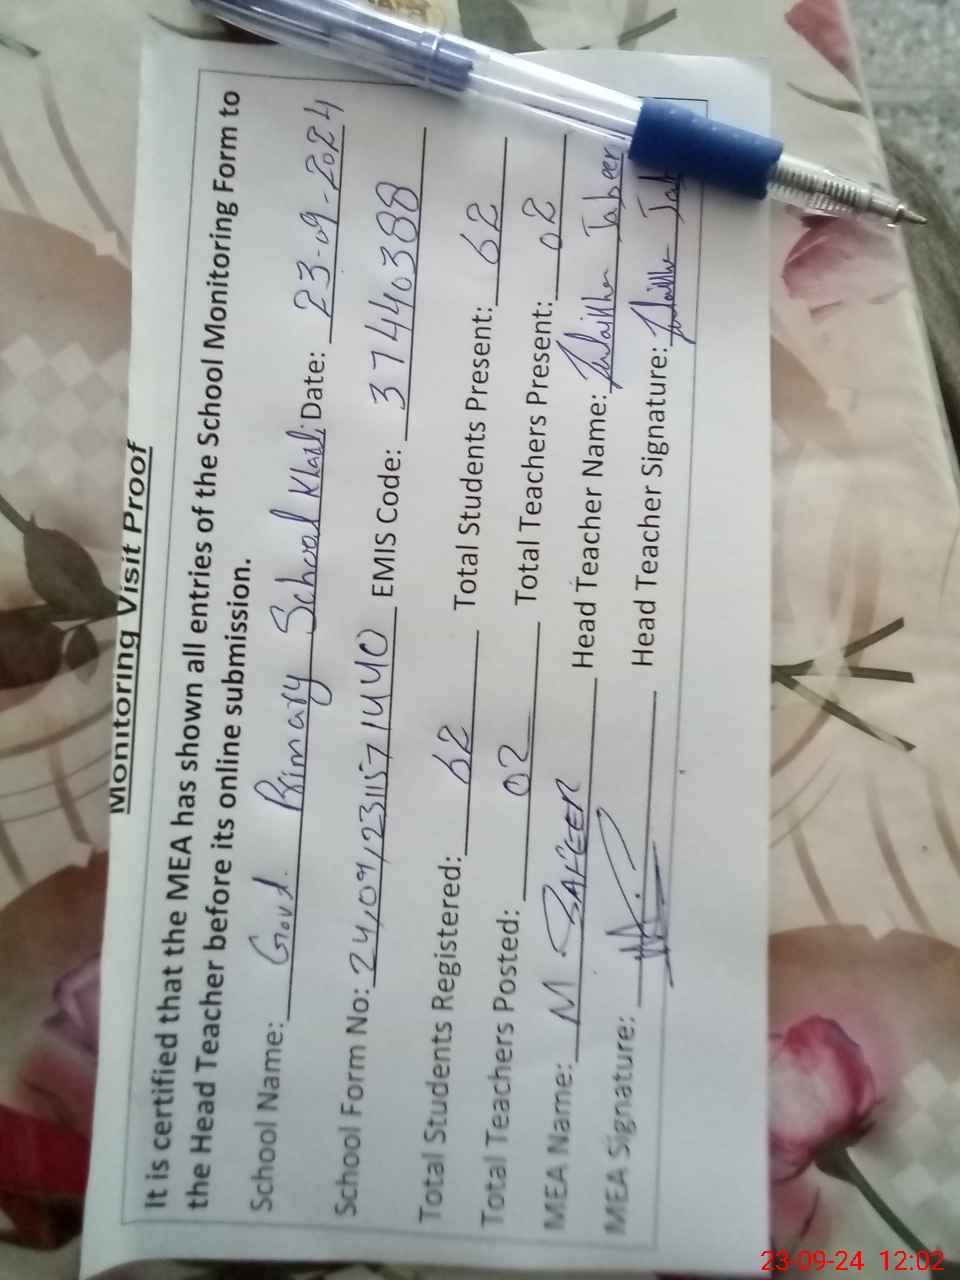 Monitoring Visit Proof
It is certified that the MEA has shown all entries of the School Monitoring Form to
the Head Teacher before its online submission.
School Name: Govt. Primary School Khasli Date: 23-09-2024
School Form No: 24,09,231157 1440 EMIS Code: 37440388
Total Students Registered: 62 Total Students Present: 62
Total Teachers Posted: 02 Total Teachers Present: 02
MEA Name: M SAFEER Head Teacher Name: Zulaikha Jabeen
MEA Signature: Head Teacher Signature: Zulaikha
23-09-24 12:02